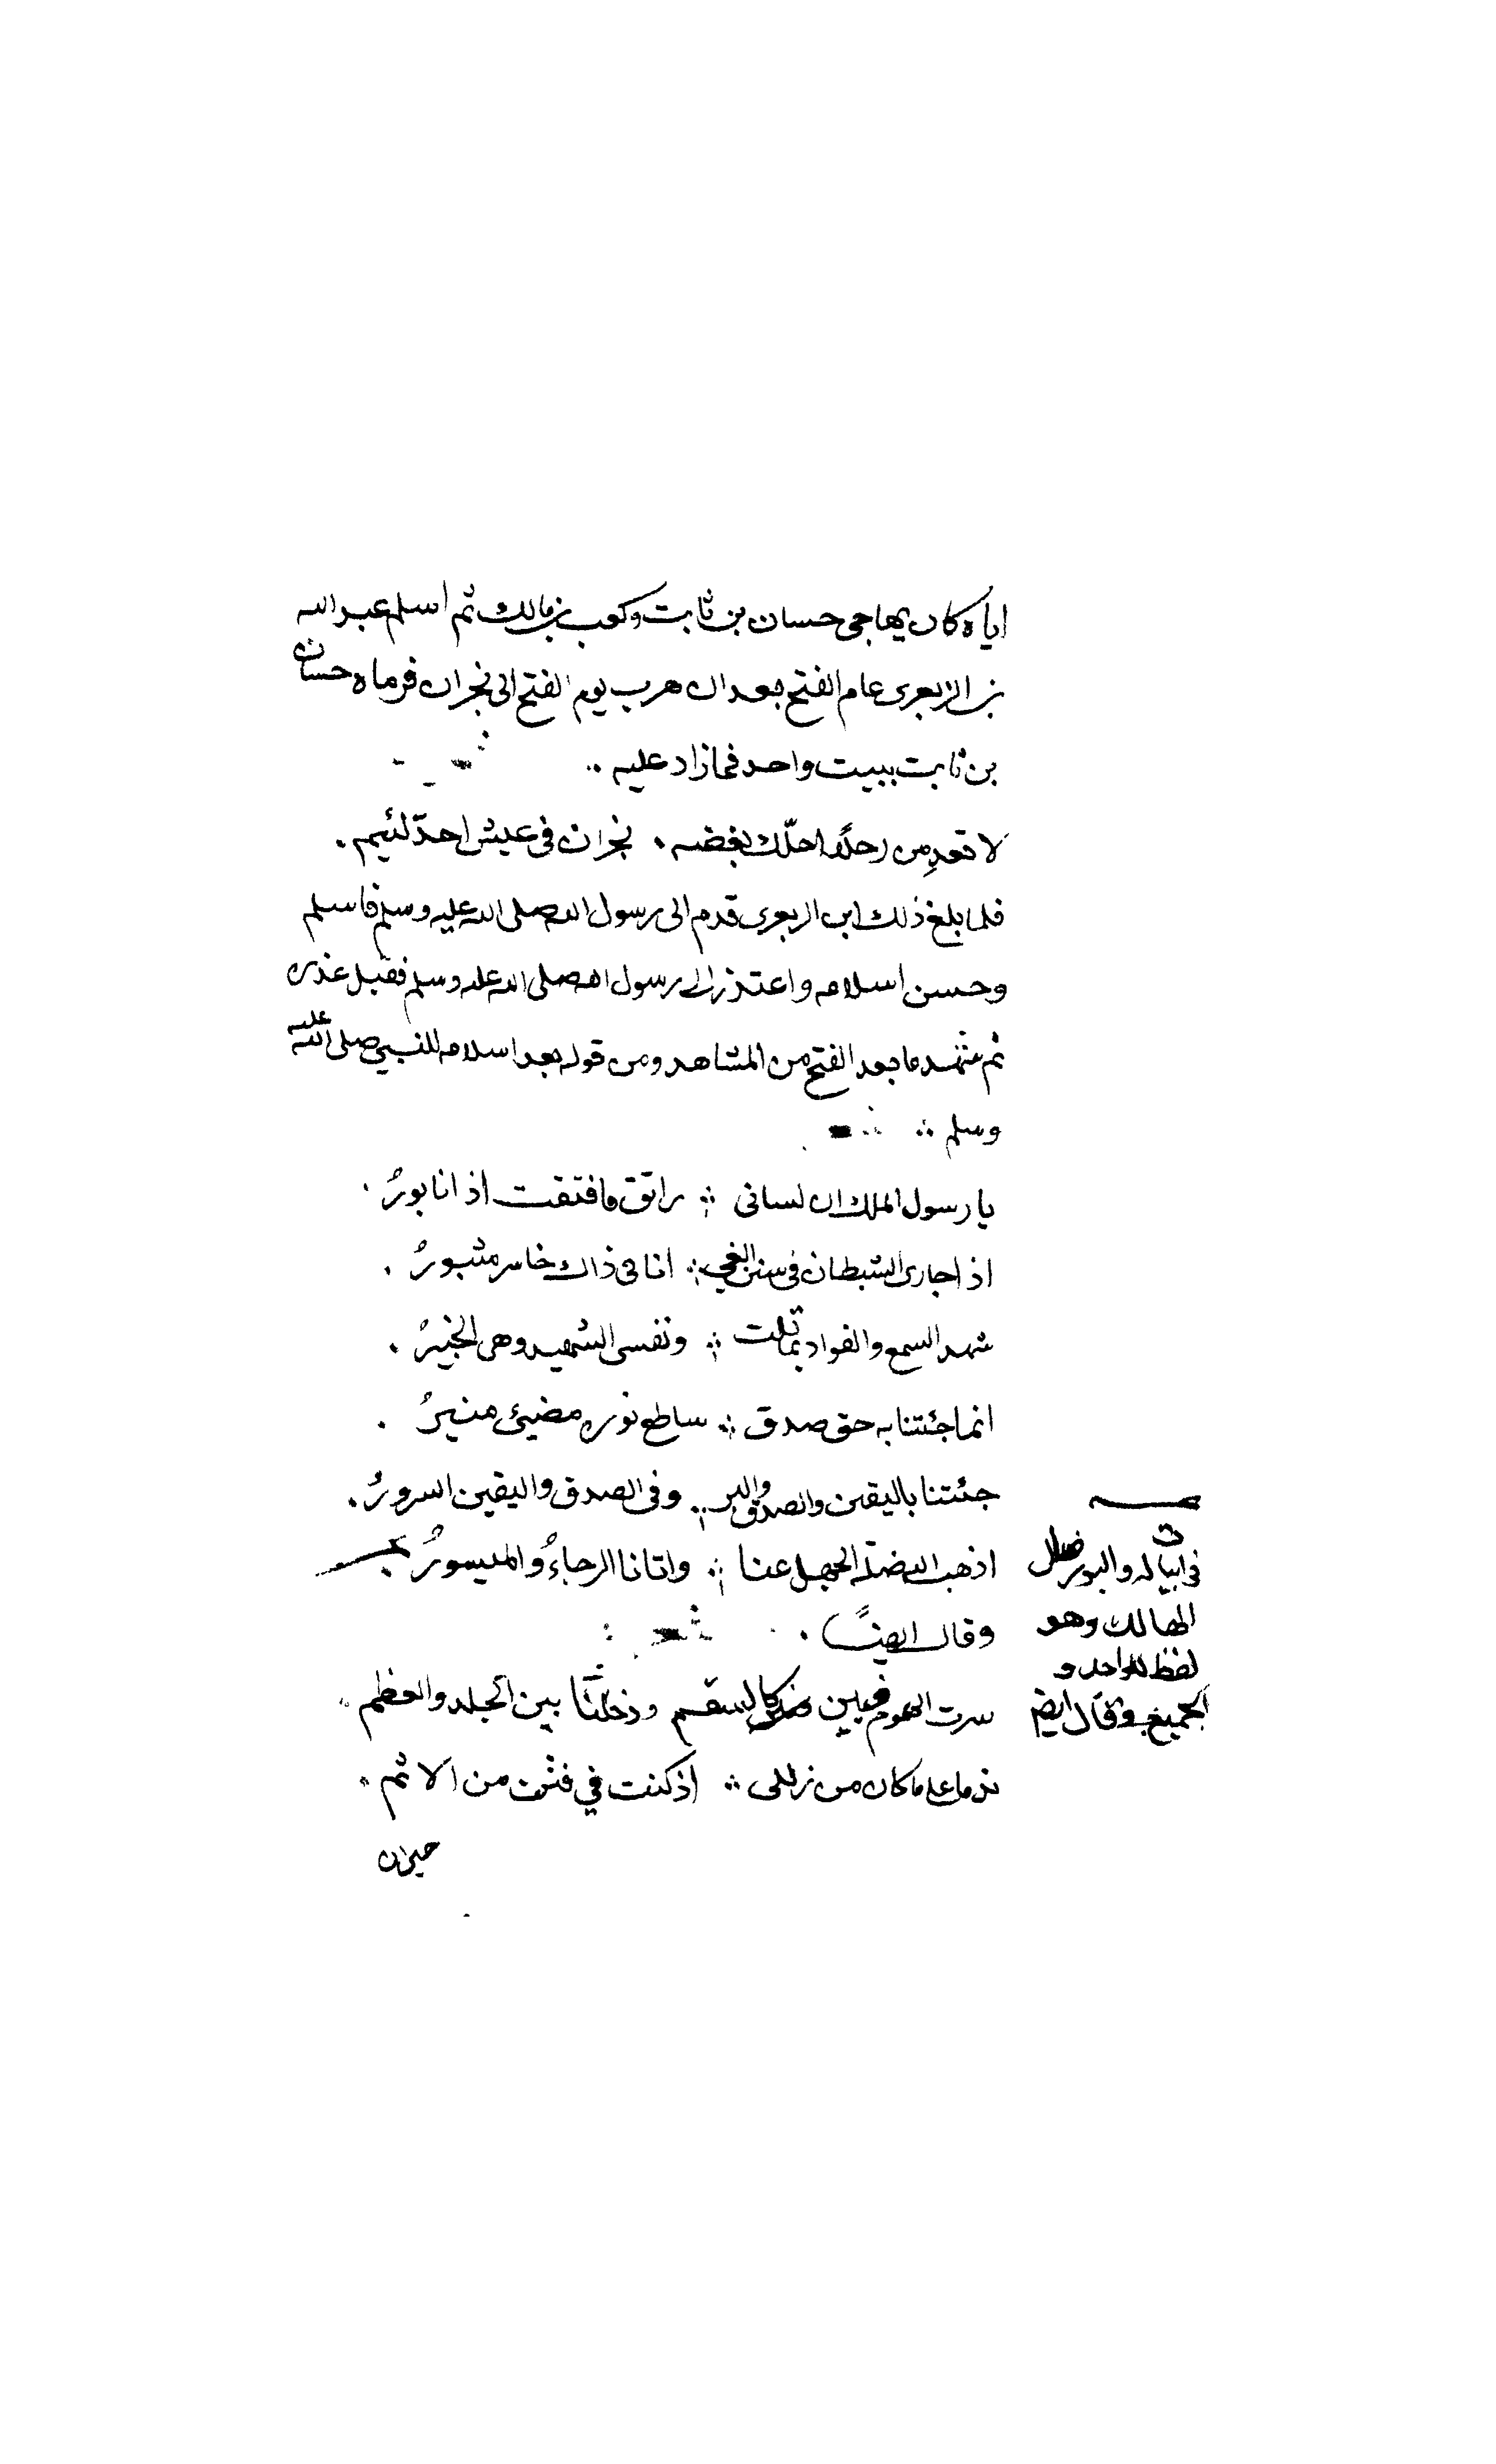 اياه كان يهاجى حسان بن ثابت وكعب بن مالك ثم اسلم عبد الله
بن الزبعرى عام الفتح بعد ان هرب يوم الفتح الى نجران فرماه حسان
بن ثابت ببيت واحد فما زاد عليه
لا تعدِمن رجلاً احلّك بغضه نجران فى عيش احدّ لئيم
فلما بلغ ذلك ابن الزبعرى قدم الى رسول الله صلى الله عليه وسلم فاسلم
وحسن اسلامه واعتذر الى رسول الله صلى الله عليه وسلم فقبل عذره
ثم شهد ما بعد الفتح من المشاهد ومن قوله بعد اسلامه للنبي صلى الله عليه
وسلم
يا رسول الملك ان لسانى راتق ما فتقت اذ انا بورُ
اذ اجارى الشيطان فى سنن الغي انا فى ذاك خاسر مثبورُ
شهد السمع والفواد بما قلت ونفسى الشهيد وهى الخبيرُ
انما جئتنا به حق صدق ساطع نوره مضيئ منيرُ
جئتنا باليقين والصدق والبر وفى الصدق واليقين السرورُ
اذهب الله ضلة الجهل عنا واتانا الرخاءُ والميسورُ
وقال ايضًا
سرت الهموم كالسقم بين الجلد والعظم
ندما على ما كان من زللى اذ كنت في فتن من الاثم
حيران
فى ابياته والبور ضلال
الهالك وهو
لفظ للواحد و
الجميع وقال ايض